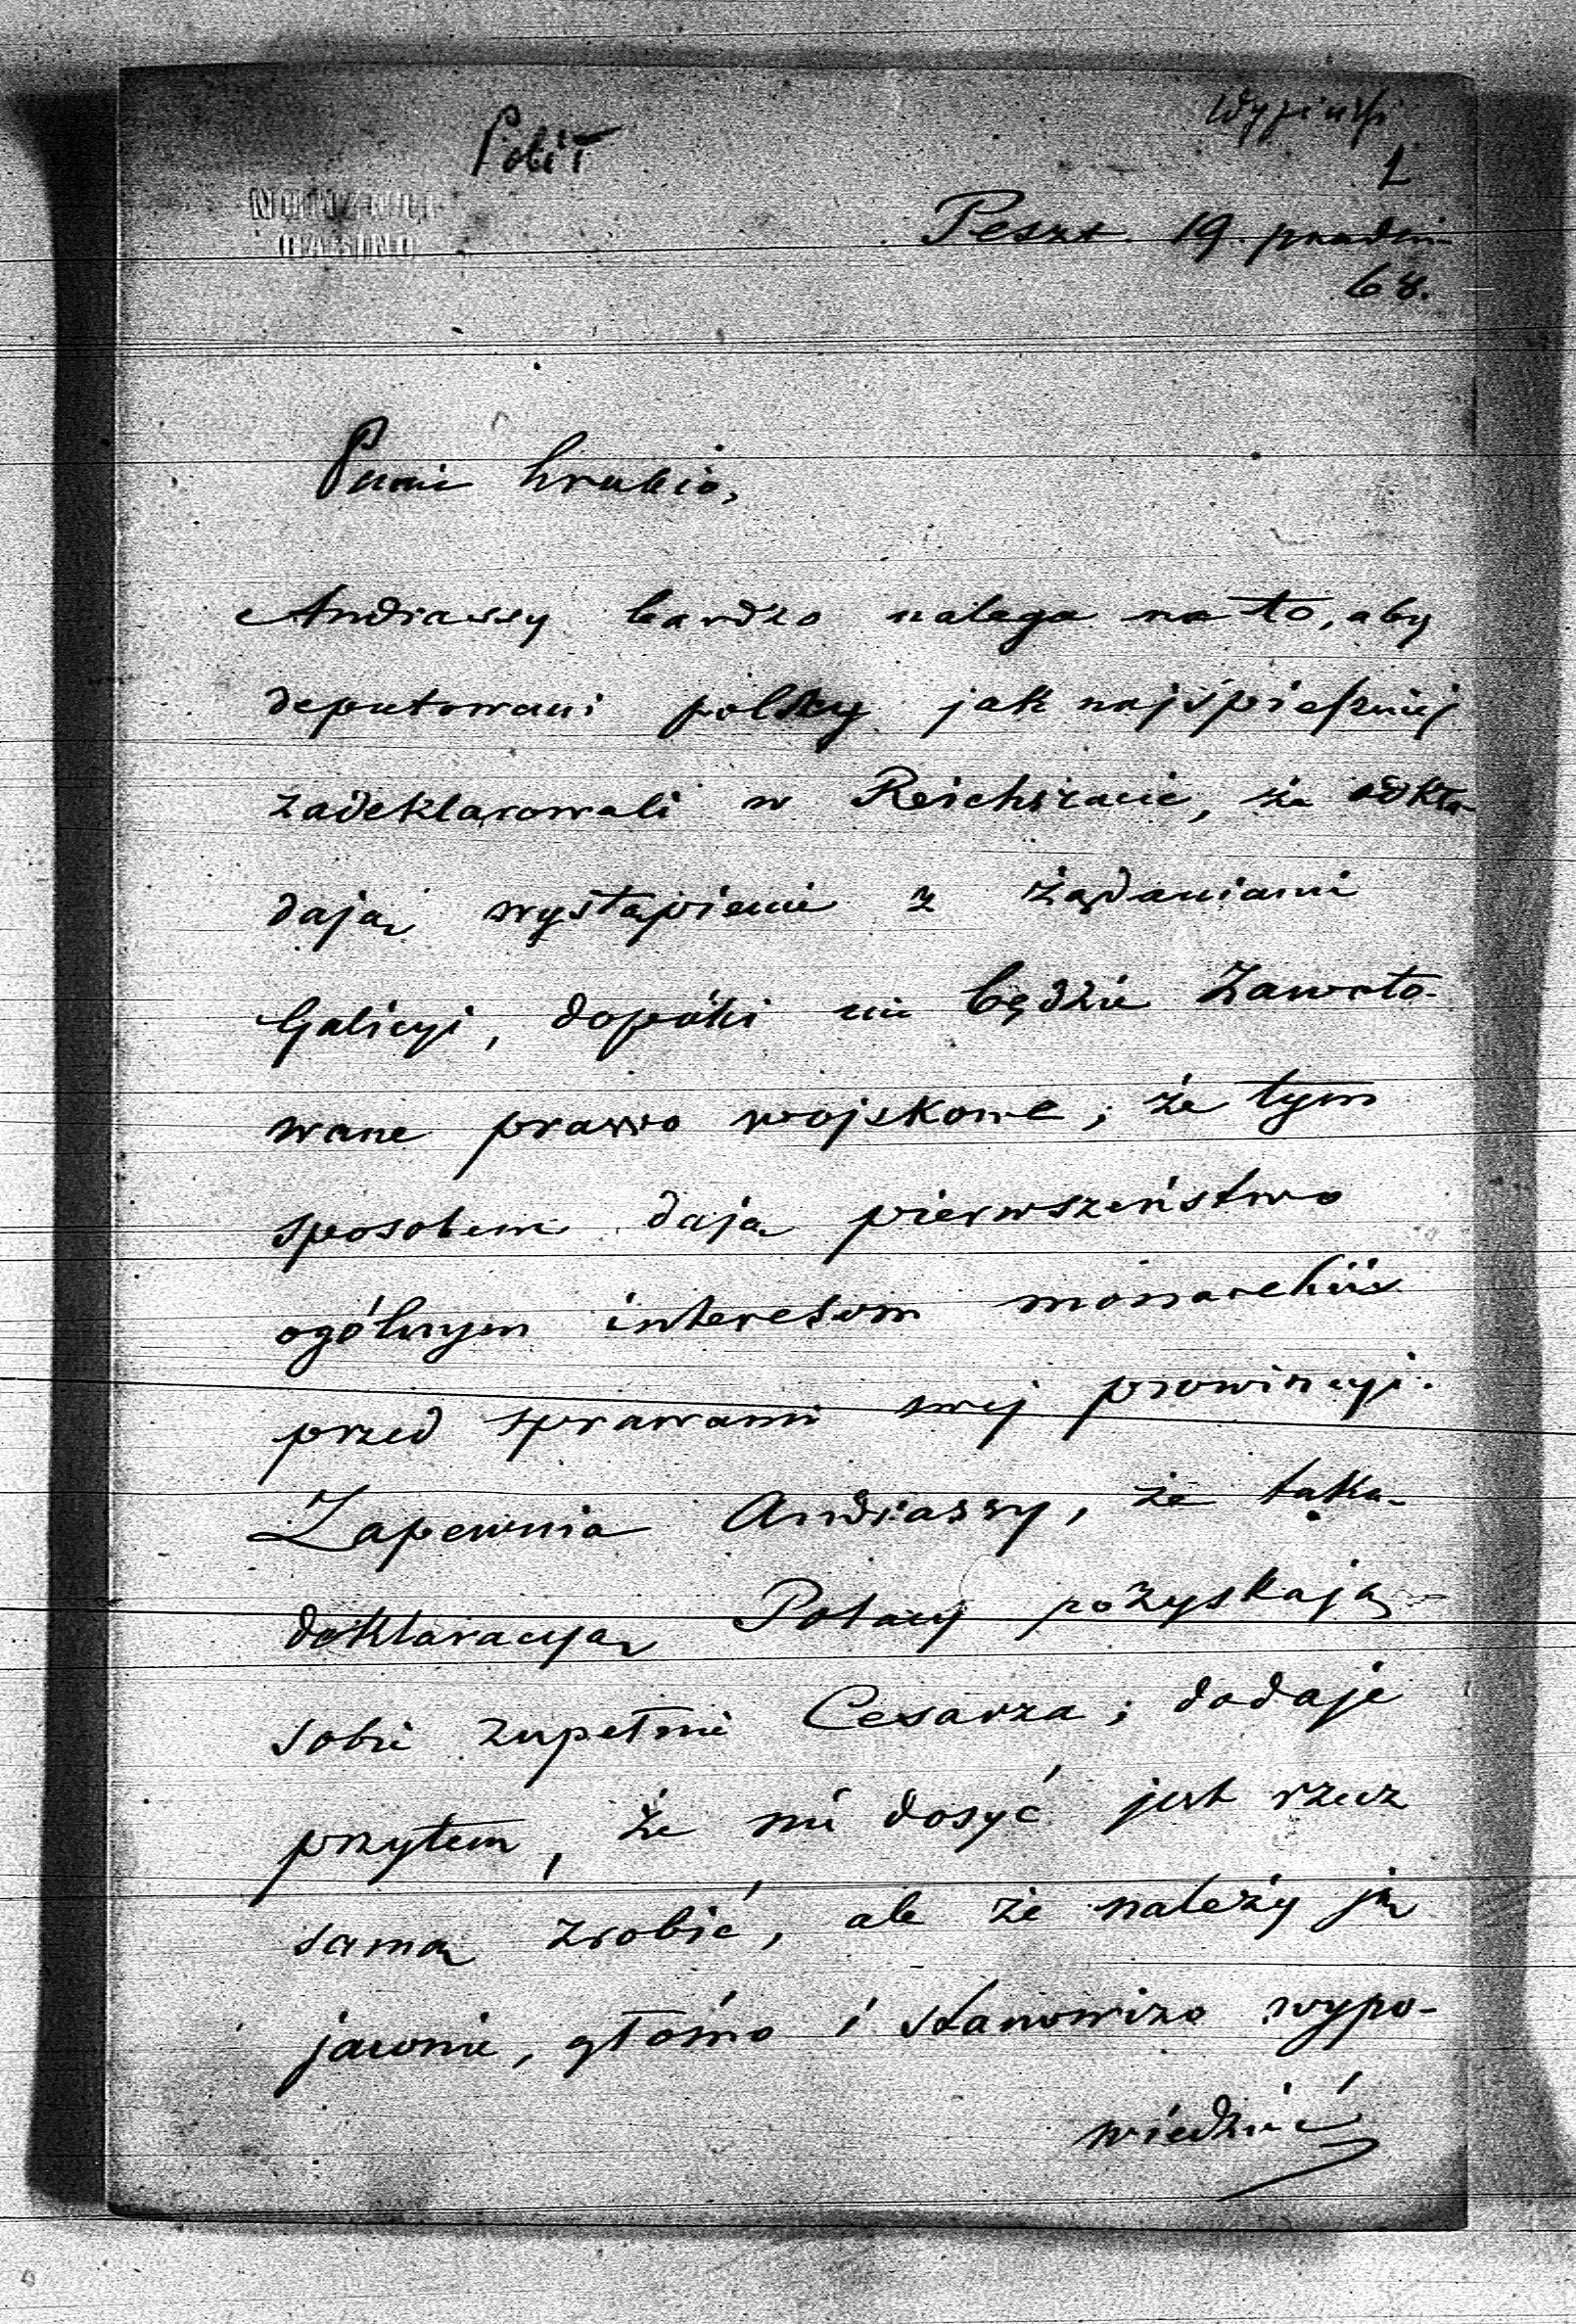 Polit
1
NEMZETI
CASINO
Peszt. 19 grudni
68.
Panie hrabio,
Andrassy bardzo nalega na to, aby
deputowani polscy jak najśpieszniej
zadeklarowali w Reichsracie, że odkła-
dają wystąpienie z żądaniami
Galicyi, dopóki nie będzie zawoto-
wane prawo wojskowe; że tym
sposobem dają pierwszeństwo
ogólnym interesom monarchii
przed sprawami swej prowincyi.
Zapewnia Andrassy, że taką
deklaracyją Polacy pozyskają
sobie zupełnie Cesarza; dodaje
przytem, że nie dosyć jest rzecz
samą zrobić, ale że należy ją
jawnie, głośno i stanowczo wypo-
wiedzieć